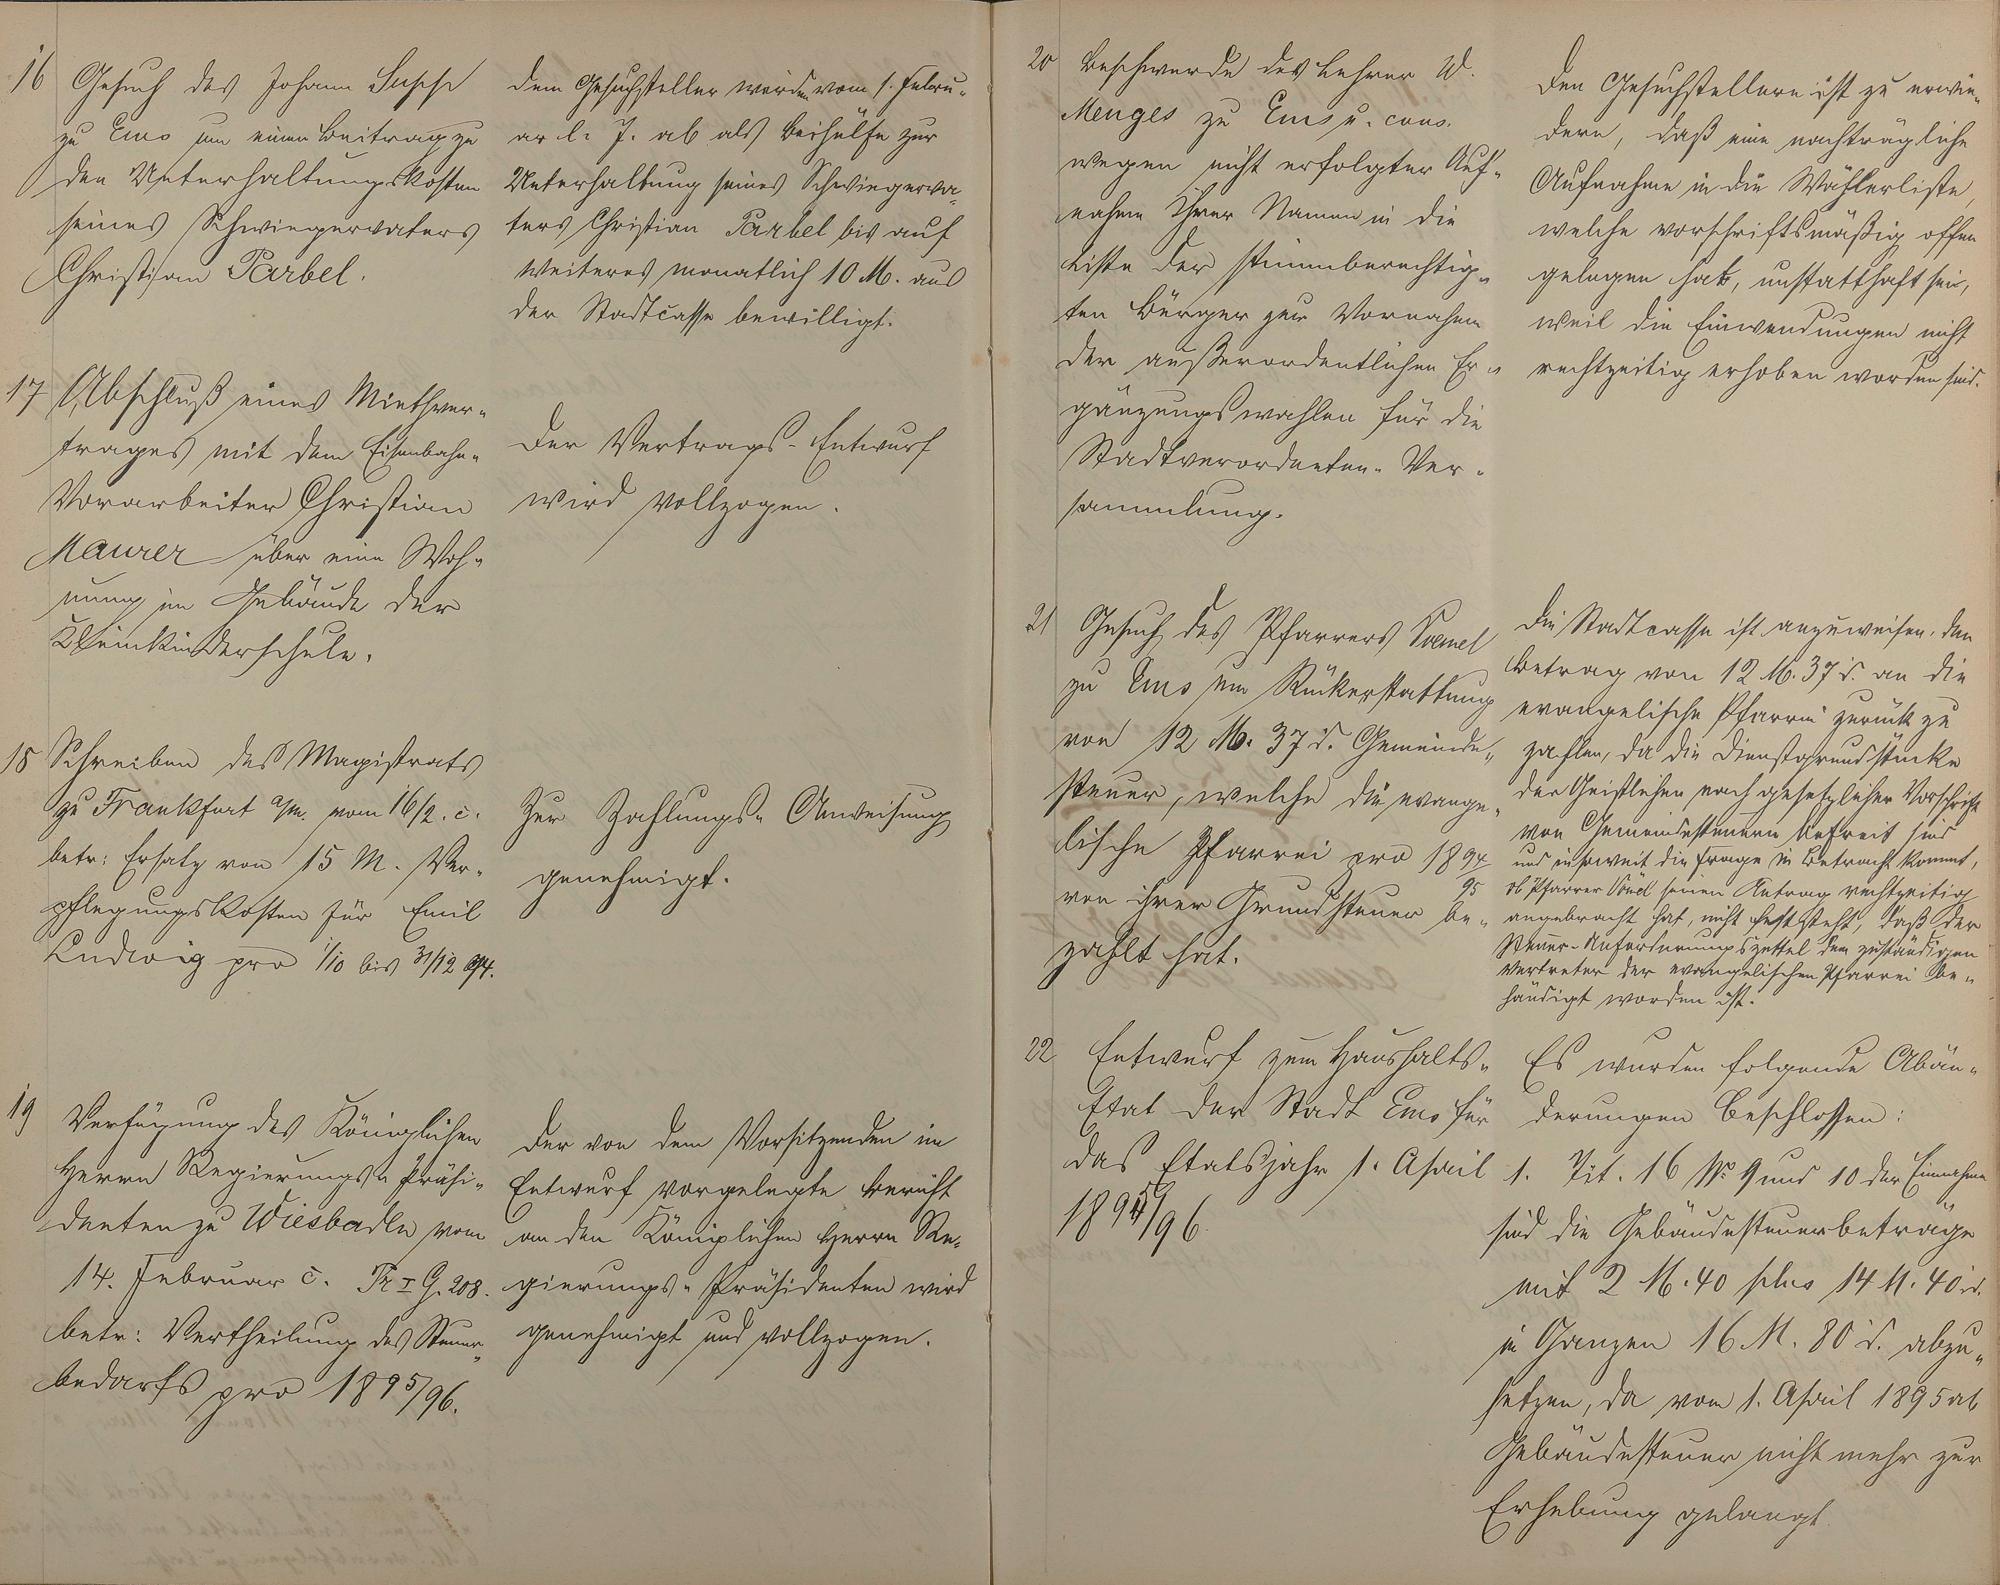 16
Gesuch des Johann
zu Ems um einen Beitrag zu
den Unterhaltungskosten
seines Schwiegervaters
Christian Parbel.
Dem Gesuchsteller werden vom 1. Febru-
ar l. J. ab als Beihülfe zur
Unterhaltung seines Schwiegerva-
ters Christian Parbel bis auf
Weiteres monatlich 10 M. aus
der Stadtcasse bewilligt.
17
Abschluß eines Miethver-
trages mit dem Eisenbahn-
Vorarbeiter Christian
Maurer über eine Woh-
nung im Gebäude der
Kleinkinderschule.
Der Vertrags-Entwurf
wird vollzogen.
18
Schreiben des Magistrats
zu Frankfurt a/m. vom 16/2. c.
betr: Ersatz von 15 M. Ver-
pflegungskosten für Emil
Ludwig pro 1/10 bis 31/12 94.
Zur Zahlungs-Anweisung
genehmigt.
19
Verfügung des Königlichen
Herrn Regierungs-Präsi-
denten zu Wiesbaden vom
14. Februar c. Pr I G. 208.
betr: Vertheilung des Steuer-
bedarfs pro 1895/96.
Der von dem Vorsitzenden im
Entwurf vorgelegte Bericht
an den Königlichen Herrn Re-
gierungs-Präsidenten wird
genehmigt und vollzogen.
20
Beschwerde des Lehrer W.
Menges zu Ems u. cons.
wegen nicht erfolgter Auf-
nahme ihrer Namen in die
Liste der stimmberechtig-
ten Bürger zur Vornahme
der außerordentlichen Er-
gänzungswahlen für die
Stadtverordneten-Ver-
sammlung.
Den Gesuchstellern ist zu erwie-
dern, daß eine nachträgliche
Aufnahme in die Wählerliste,
welche vorschriftsmäßig offen
gelegen hat, unstatthaft sei,
weil die Einwendungen nicht
rechtzeitig erhoben worden sind.
21
Gesuch des Pfarrers Vömel
zu Ems um Rückerstattung
von 12 M. 37 d. Gemeinde-
steuer, welche die evange-
lische Pfarrei pro 1894/95
von ihrer Grundsteuer be-
zahlt hat.
Die Stadtcasse ist anzuweisen, den
Betrag von 12 M. 37 d. an die
evangelische Pfarrei zurück zu
zahlen, da die Dienstgrundstücke
der Geistlichen nach gesetzlicher Vorschrift
von Gemeindesteuern befreit sind
und insoweit die Frage in Betracht kommt,
ob Pfarrer Vömel seinen Antrag rechtzeitig
angebracht hat, nicht feststeht, daß der
Steuer-Anforderungszettel dem zuständigen
Vertreter der evangelischen Pfarrei be-
händigt worden ist.
22
Entwurf zum Haushalts-
Etat der Stadt Ems für
das Etatsjahr 1. April
1895/96.
Es wurden folgende Abän-
derungen beschlossen:
1. Tit. 16 No 9 und 10 der Einnahme
sind die Gebäudesteuerbeträge
mit 2 M. 40 plus 14 M. 40 d.
im Ganzen 16 M. 80 d. abzu-
setzen, da vom 1. April 1895 ab
Gebäudesteuer nicht mehr zur
Erhebung gelangt.